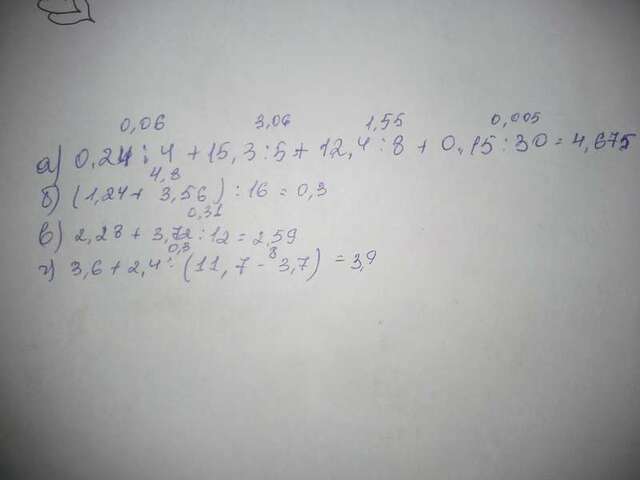 0,06 3,06 1,55 0,005
а) 0,24 : 4 + 15,3 : 5 + 12,4 : 8 + 0,15 : 30 = 4,675
4,8
б) (1,24 + 3,56) : 16 = 0,3
0,31
в) 2,28 + 3,72 : 12 = 2,59
0,3 8
г) 3,6 + 2,4 : (11,7 - 3,7) = 3,9